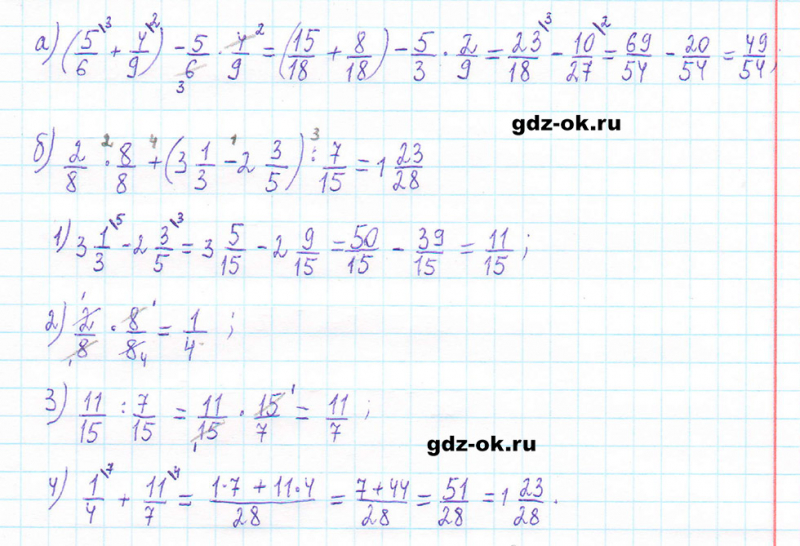 а) (5/6\3 + 4/9\2) - 5/6 3 · 4/9 2 = (15/18 + 8/18) - 5/3 · 2/9 = 23/18\3 - 10/27\2 = 69/54 - 20/54 = 49/54;
gdz-ok.ru
б) 2/8 ·2 8/8 +4 (3 1/3 -1 2 3/5) :3 7/15 = 1 23/28
1) 3 1/3\5 - 2 3/5\3 = 3 5/15 - 2 9/15 = 50/15 - 39/15 = 11/15;
2) 2/8 · 8/8 = 1/4;
3) 11/15 : 7/15 = 11/15 · 15/7 = 11/7;
gdz-ok.ru
4) 1/4\7 + 11/7\4 = 1·7 + 11·4/28 = 7+44/28 = 51/28 = 1 23/28.